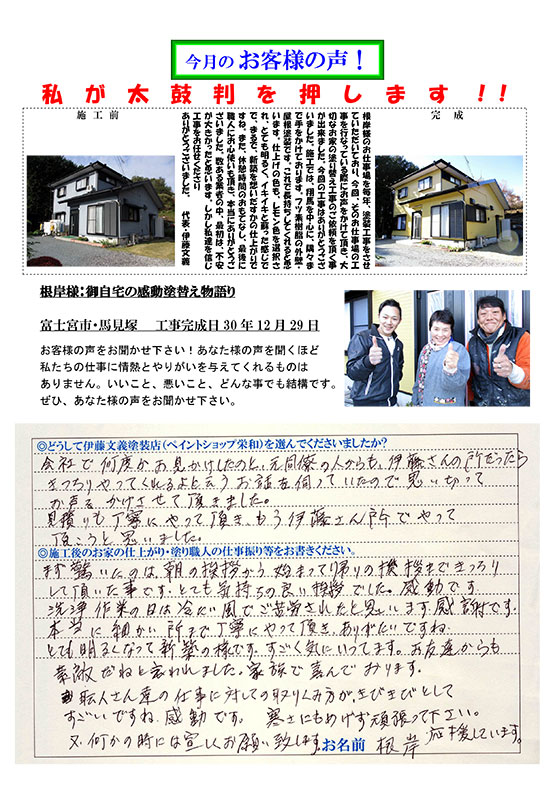 今月の お客様の声！
私が太鼓判を押します!!
施工前
完成
根岸様のお仕事場を毎年、塗装工事をさせ
ていただいており、今回、そのお仕事場の工
事を行なっている際にお声をかけて頂き、大
切なお家の塗り替え工事のご依頼を頂く事
が出来ました。今回の工事はありがとうござ
いました。施工では、翔馬を中心に、隅々ま
で手をかけております。フッ素樹脂の外壁・
屋根塗装です。これで長持ちしてくれると思
います。仕上げの色も、レモン色を選択さ
れ、とても明るく、イキイキと蘇った感じで
で、まるで、新築を思いだすかの仕上がりで
すね。また、休憩時間のおもてなし、最後に
職人にお心使いも頂き、本当にありがとうご
ざいました。数ある業者の中、最初は、不安
が大きかったと思います。しかし私達を信じ
工事をお任せくださり
ありがとうございました。 代表・伊藤文義
根岸様：御自宅の感動塗替え物語り
富士宮市・馬見塚 工事完成日30年12月29日
お客様の声をお聞かせ下さい！あなた様の声を聞くほど
私たちの仕事に情熱とやりがいを与えてくれるものは
ありません。いいこと、悪いこと、どんな事でも結構です。
ぜひ、あなた様の声をお聞かせ下さい。
◎どうして伊藤文義塗装店（ペイントショップ栄和）を選んでくださいましたか？
会社で何度かお見かけしたのと、元同僚の人からも、伊藤さんの所だったら
きっちりやってくれるよと云うお話を伺っていたので思い切って
お声をかけさせて頂きました。
見積りも丁寧にやって頂き、もう伊藤さん所でやって
頂こうと思いました。
◎施工後のお家の仕上がり・塗り職人の仕事振り等をお書きください。
先ず驚いたのは、朝の挨拶から始まって帰りの挨拶まできっちり
して頂いた事です。とても気持ちの良い挨拶でした。感動です。
洗浄作業の日は冷たい風でご苦労されたと思います。感謝です。
本当に細かい所まで丁寧にやって頂き、ありがたいですね。
とても明るくなって新築の様です。すごく気にいってます。お友達からも
素敵だねと言われました。家族で喜んでおります。
職人さん達の仕事に対しての取りくみ方が、きびきびとして
すごいですね、感動です。寒さにもめげず頑張って下さい。
又、何かの時には宜しくお願い致します。 応援しています。
お名前 根岸